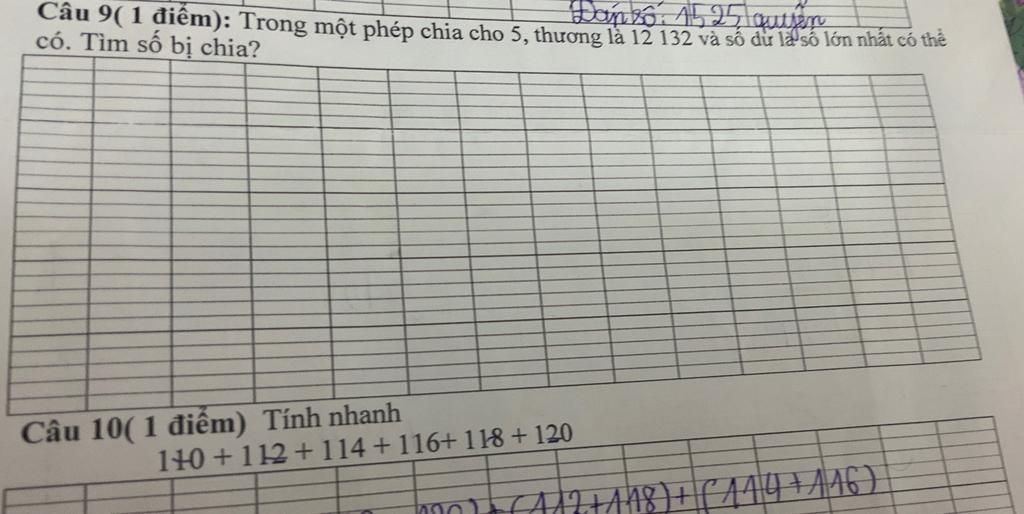 Đáp số: 1525 quyển
Câu 9( 1 điểm): Trong một phép chia cho 5, thương là 12 132 và số dư là số lớn nhất có thể
có. Tìm số bị chia?
Câu 10( 1 điểm) Tính nhanh
110 + 112 + 114 + 116+ 118 + 120
+ (112+118)+ (114+116)